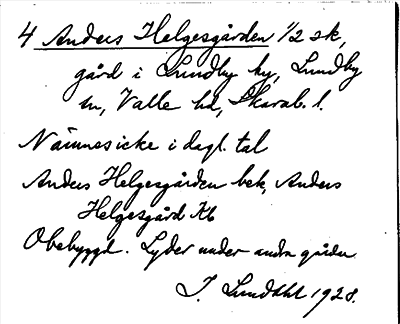 4 Anders Helgesgården 1/2 sk,
gård i Lundby by, Lundby
sn, Valle hd, Skarab. l.
Nämnes icke i dagl. tal
Anders Helgesgården bek, Anders
Helgesgård Kb
Obebyggd. Lyder under andra gårdar
J. Lundahl 1928.